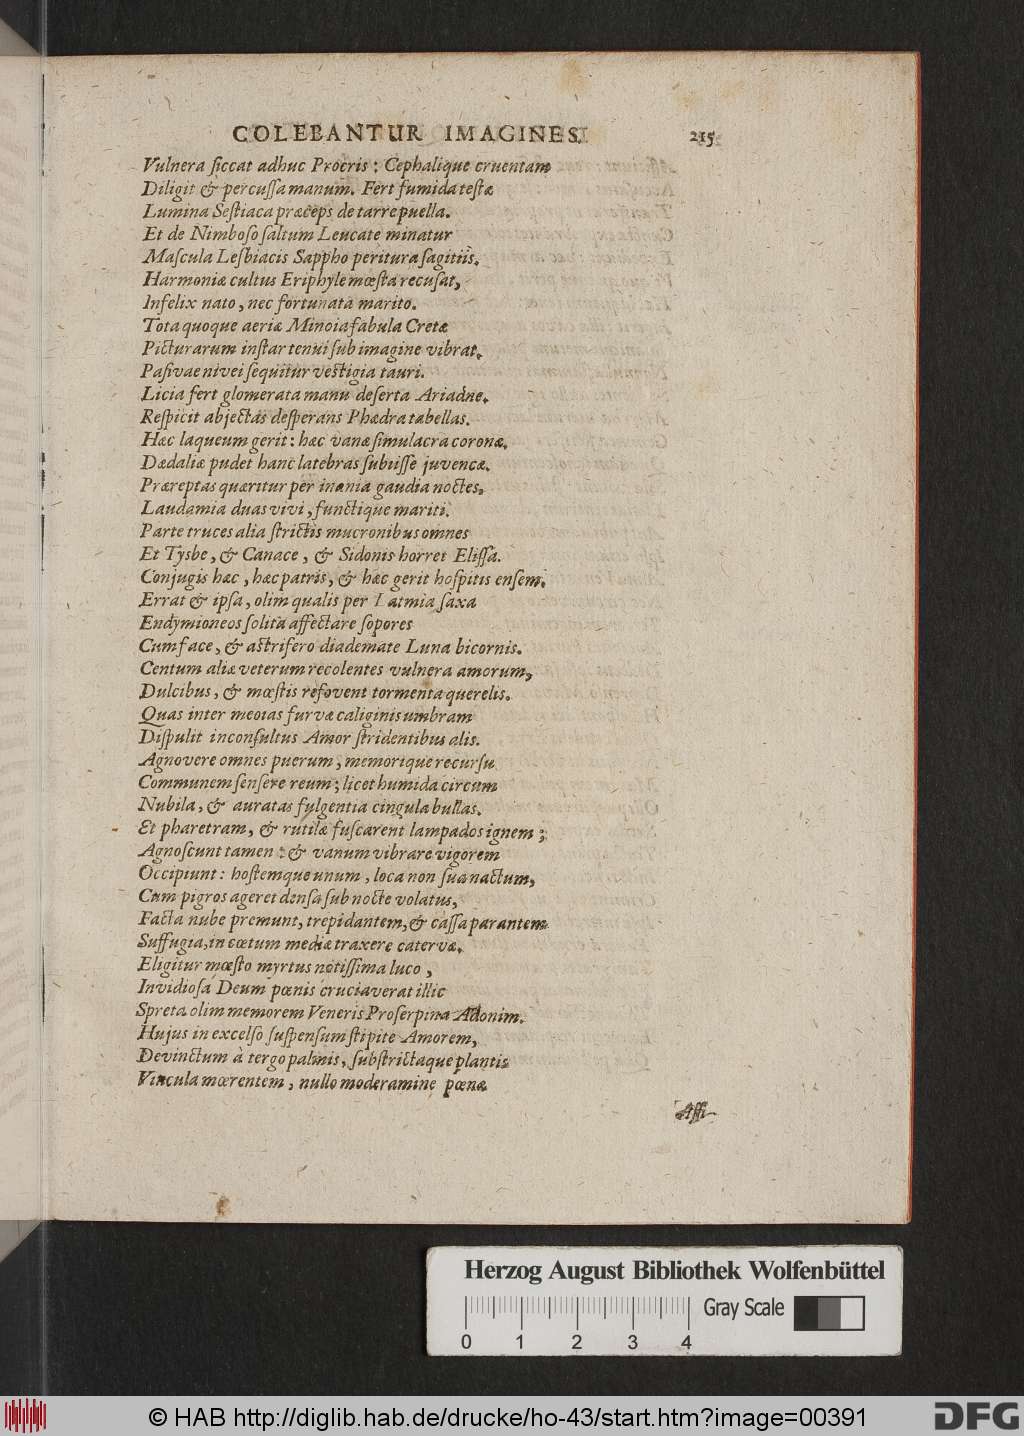 COLEBANTUR IMAGINES. 215
Vulnera ſiccat adhuc Procris : Cephalique cruentam
Diligit & percuſſa manum. Fert fumida teſtæ
Lumina Seſtiaca præceps de tarre puella.
Et de Nimboſo ſaltum Leucate minatur
Maſcula Lesbiacis Sappho peritura ſagittis.
Harmoniæ cultus Eriphyle mœſta recuſat,
Infelix nato, nec fortunata marito.
Tota quoque aeriæ Minoia fabula Cretæ
Picturarum inſtar tenui ſub imagine vibrat.
Paſivae nivei ſequitur veſtigia tauri.
Licia fert glomerata manu deſerta Ariadne.
Reſpicit abjectas deſperans Phædra tabellas.
Hæc laqueum gerit : hæc vanæ ſimulacra coronæ.
Dædaliæ pudet hanc latebras ſubiiſſe juvencæ.
Præreptas quæritur per inania gaudia noctes,
Laudamia duas vivi, functique mariti.
Parte truces alia ſtrictis mucronibus omnes
Et Tysbe, & Canace, & Sidonis horret Eliſſa.
Conjugis hæc, hæc patris, & hæc gerit hoſpitis enſem.
Errat & ipſa, olim qualis per Latmia ſaxa
Endymioneos ſolita affectare ſopores
Cum face, & aſtrifero diademate Luna bicornis.
Centum aliæ veterum recolentes vulnera amorum,
Dulcibus, & mœſtis refovent tormenta querelis.
Quas inter medias furvæ caliginis umbram
Diſpulit inconſultus Amor ſtridentibus alis.
Agnovere omnes puerum, memorique recurſu
Communem ſenſere reum ; licet humida circum
Nubila, & auratas fulgentia cingula bullas.
Et pharetram, & rutilæ fuſcarent lampados ignem ;
Agnoſcunt tamen : & vanum vibrare vigorem
Occipiunt : hoſtemque unum, loca non ſua nactum,
Cum pigros ageret denſa ſub nocte volatus,
Facta nube premunt, trepidantem, & caſſa parantem
Suffugia, in cœtum mediæ traxere catervæ.
Eligitur mœſto myrtus notiſſima luco,
Invidioſa Deum pœnis cruciaverat illic
Spreta olim memorem Veneris Proſerpina Adonim.
Hujus in excelſo ſuſpenſum ſtipite Amorem,
Devinctum à tergo palmis, ſubſtrictaque plantis
Vincula mœrentem, nullo moderamine pœnæ
Affi-
Herzog August Bibliothek Wolfenbüttel
Gray Scale
0 1 2 3 4
© HAB http://diglib.hab.de/drucke/ho-43/start.htm?image=00391
DFG